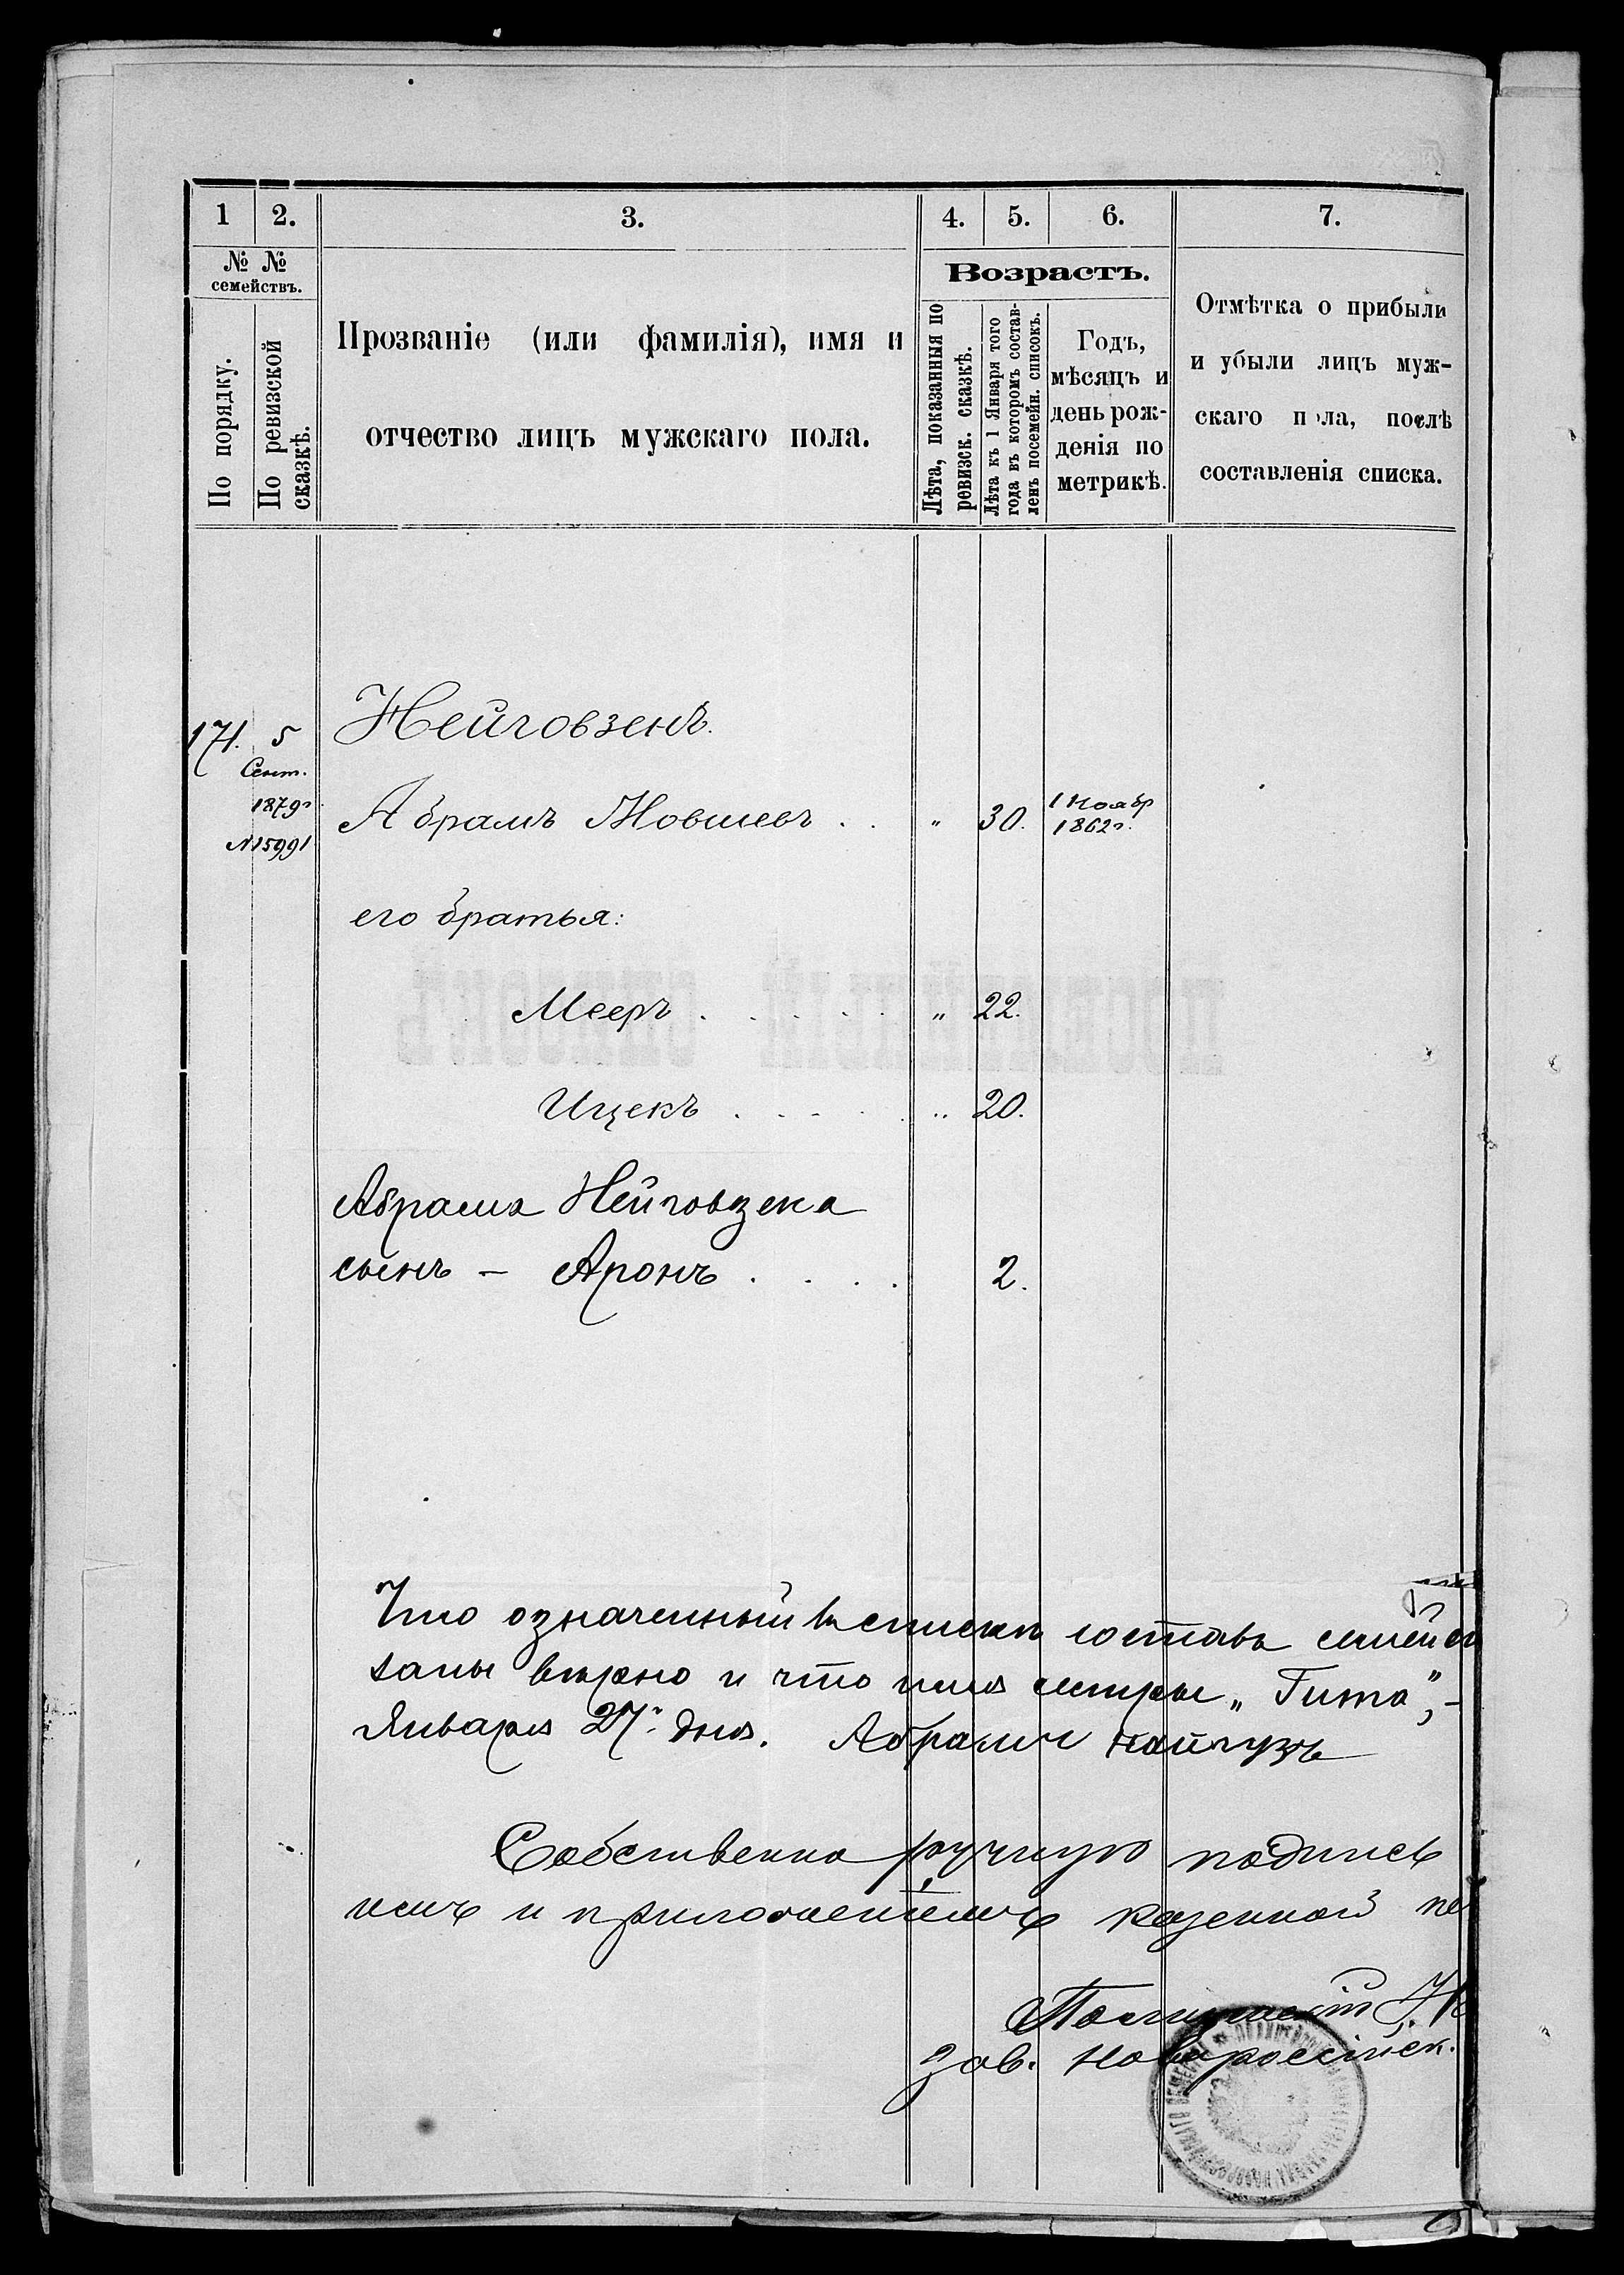 1 2. 3. 4. 5. 6. 7.
№ №
семействъ.
По порядку.
По ревизской
сказкѣ.
Прозваніе (или фамилія), имя и
отчество лицъ мужскаго пола.
Возрастъ.
Лѣта, показанныя по
ревизск. сказкѣ.
Лѣта къ 1 Января того
года въ которомъ состав-
ленъ посемейн. списокъ.
Годъ,
мѣсяцъ и
день рож-
денія по
метрикѣ.
Отмѣтка о прибыли
и убыли лицъ муж-
скаго пола, послѣ
составленія списка.
171. 5 Нейговзенъ.
Сент.
1879г.
№15991
Абрамъ Мовшевъ . . " 30. 1 Ноябр
1862г.
его братья:
Мееръ . . . . . " 22.
Ицекъ . . . . " 20.
Абрама Нейговзена
сынъ – Аронъ . . . . 2.
Что означенный въ спискѣ составъ семей
заны вѣрно и что имя сестры „Гита", –
Января 27 дня. Абрамъ
Собственно ручную подпись
емъ и приложеніемъ казенной пе
зав. Новороссійск.